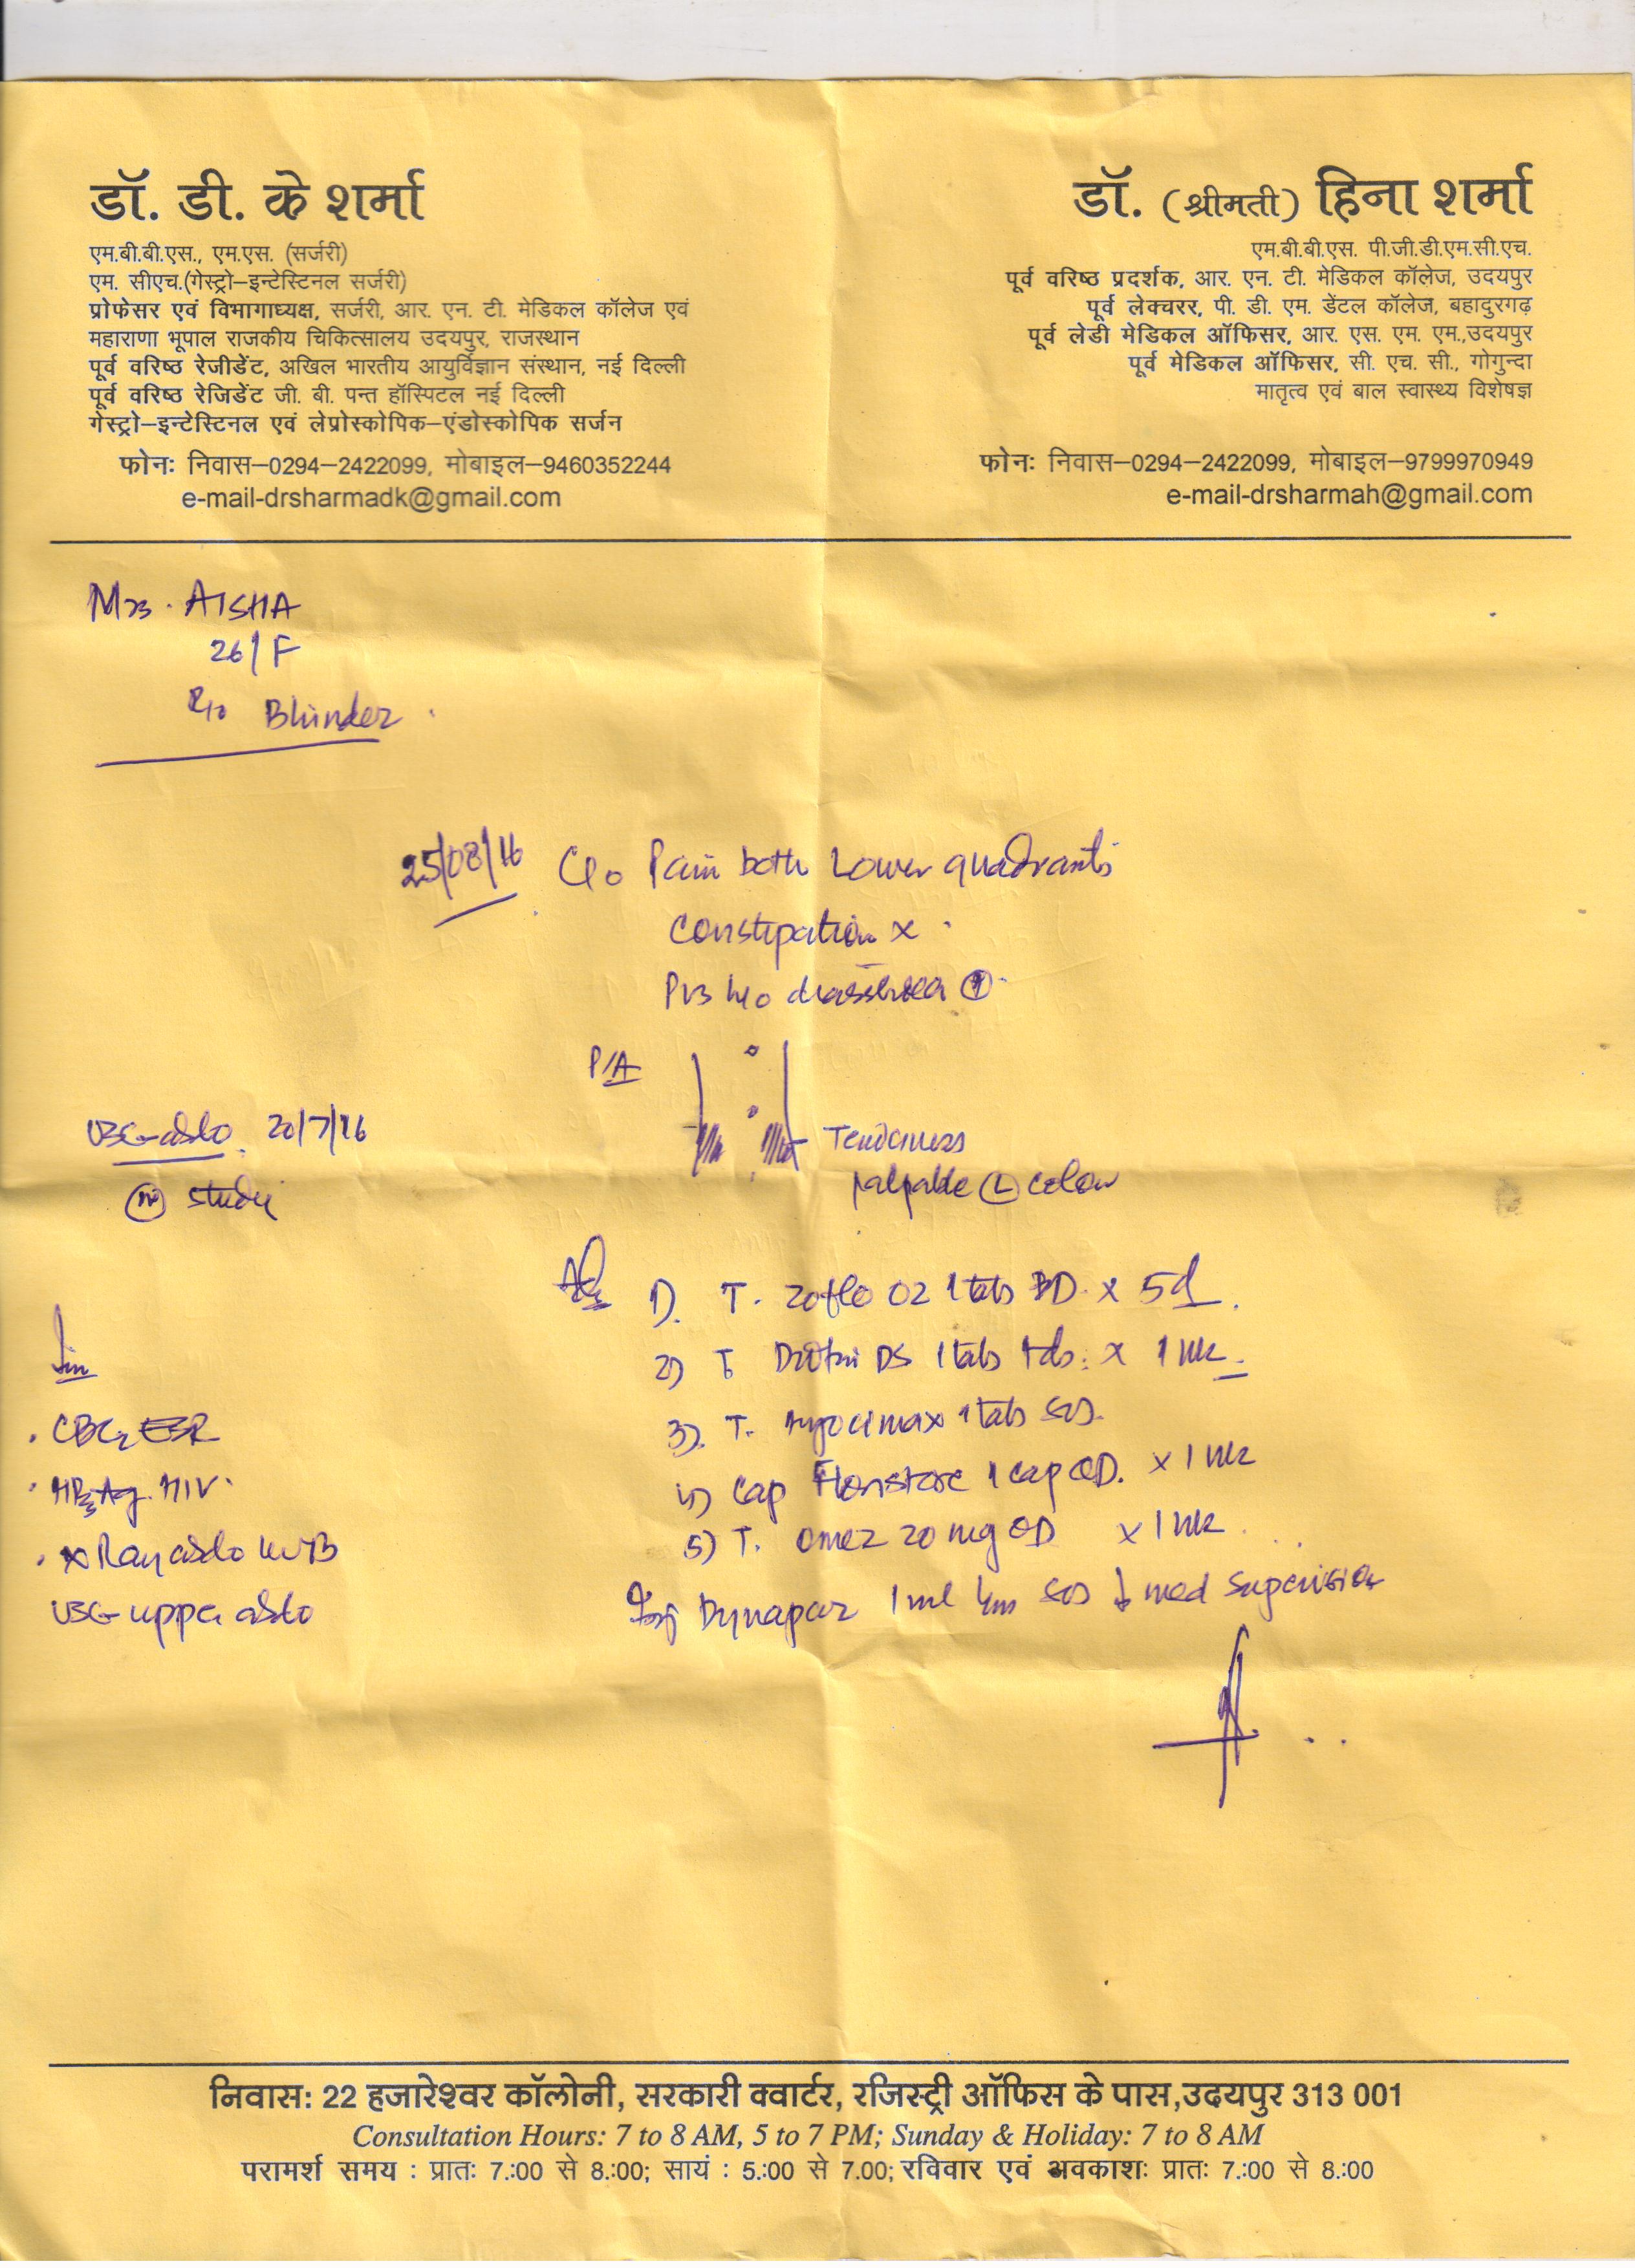 डॉ. डी. के शर्मा
एम.बी.बी.एस., एम.एस. (सर्जरी)
एम. सीएच.(गेस्ट्रो–इन्टेस्टिनल सर्जरी)
प्रोफेसर एवं विभागाध्यक्ष, सर्जरी, आर. एन. टी. मेडिकल कॉलेज एवं
महाराणा भूपाल राजकीय चिकित्सालय उदयपुर, राजस्थान
पूर्व वरिष्ठ रेजीडेंट, अखिल भारतीय आयुर्विज्ञान संस्थान, नई दिल्ली
पूर्व वरिष्ठ रेजिडेंट जी. बी. पन्त हॉस्पिटल नई दिल्ली
गेस्ट्रो–इन्टेस्टिनल एवं लेप्रोस्कोपिक–एंडोस्कोपिक सर्जन
फोनः निवास–0294–2422099, मोबाइल–9460352244
e-mail-drsharmadk@gmail.com
डॉ. (श्रीमती) हिना शर्मा
एम.बी.बी.एस. पी.जी.डी.एम.सी.एच.
पूर्व वरिष्ठ प्रदर्शक, आर. एन. टी. मेडिकल कॉलेज, उदयपुर
पूर्व लेक्चरर, पी. डी. एम. डेंटल कॉलेज, बहादुरगढ़
पूर्व लेडी मेडिकल ऑफिसर, आर. एस. एम. एम.,उदयपुर
पूर्व मेडिकल ऑफिसर, सी. एच. सी., गोगुन्दा
मातृत्व एवं बाल स्वास्थ्य विशेषज्ञ
फोनः निवास–0294–2422099, मोबाइल–9799970949
e-mail-drsharmah@gmail.com
Mrs. AISHA
26/F
R/o Bhinder
25/08/16 C/o Pain both Lower quadrants
Constipation x
h/o diarrhoea
P/A
USG abdo 20/7/16
Tenderness
(N) study
palpable (L) colon
Adv 1). T. Zoflo OZ 1 tab BD. x 5d.
2) T. Drotin DS 1 tab tds. x 1 wk.
3). T. 1 tab SOS.
4) Cap 1 cap OD. x 1 wk
5) T. Omez 20 mg OD x 1 wk
Inj Dynapar 1 ml I/m SOS med supervision
. CBC, ESR
. HBsAg. HIV.
. X Ray abdo KUB
USG upper abdo
निवास: 22 हजारेश्वर कॉलोनी, सरकारी क्वार्टर, रजिस्ट्री ऑफिस के पास,उदयपुर 313 001
Consultation Hours: 7 to 8 AM, 5 to 7 PM; Sunday & Holiday: 7 to 8 AM
परामर्श समय : प्रातः 7.:00 से 8.:00; सायं : 5.:00 से 7.00; रविवार एवं अवकाशः प्रातः 7.:00 से 8.:00